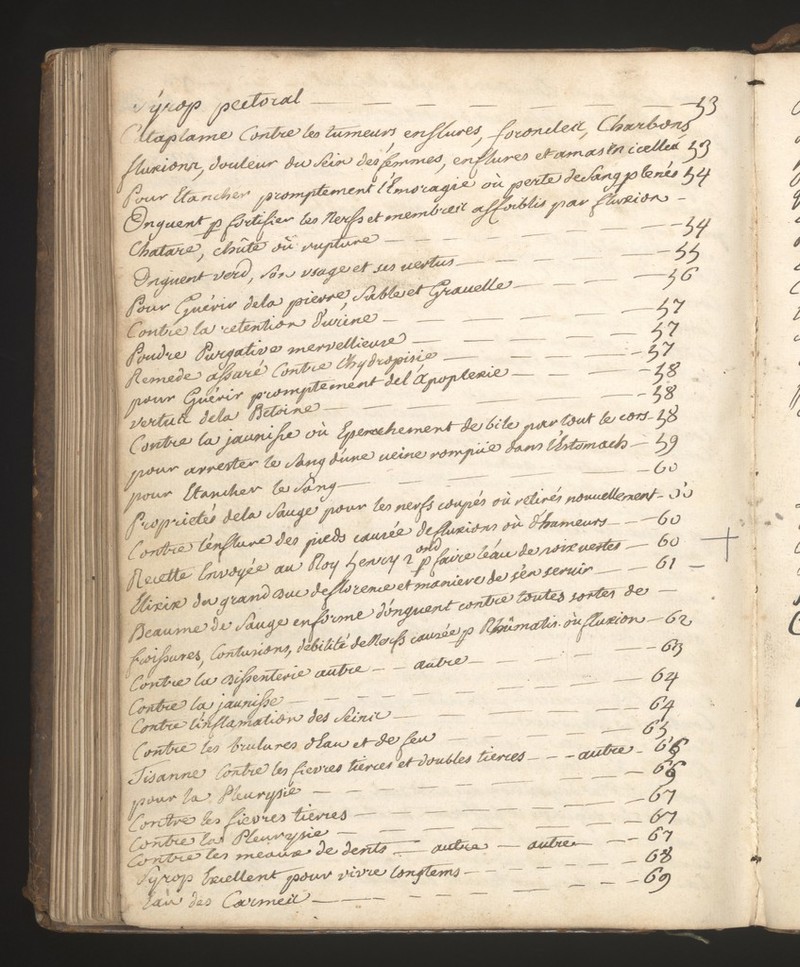 Syrop pectoral — — — — — — 53
Cataplame Contre les tumeurs, enflures, foroncleũ, Charbons
fluxions, douleur du sein des femmes, enflures et amas en icelles 53
Pour Etancher promptement l'Emoragie où perte de sang p le nés 54
Onguent p fortifier les Nerfs et membres affoiblis par fluxion —
Chatare, chûte où rupture — — — — 54
Onguent verd, son usage et ses vertus — — — 55
Pour Guérir dela pierre, sable et Gravelle — — — 56
Contre la retention d'urine — — — 57
Poudre Purgative mervellieuse — — — 57
Remede assuré Contre l'hydropisie — — — 57
pour Guérir promptement de l'apoplexie — — — 58
vertus dela Bétoine — — — 58
Contre la jaunisse où Epenchement de bile par tout le cors — 58
pour arrester le sang d'une veine rompüe dans l'Estomach — 59
pour Etancher le sang — — — 60
Proprietés dela sauge pour les nerfs coupés où retirés nouvellement — 60
Contre l'enflure des pieds causée de fluxions où d'humeurs — — 60
Recette Envoyée au Roy henry 2 ond p faire l'eau de noix vertes — 60
Elixir du grand Duc de florence et maniere de s'en servir — — 61 —
Beaume de sauge en forme d'onguent contre toutes sortes de —
froissures, Contusions, débilité de Nerfs causée p Rhûmatis. où fluxion — 62
Contre la dissenterie autre — — autre — — — 63
Contre la jaunisse — — — 64
Contre l'inflamation des seins — — — 64
Contre les brulures d'Eau et de feu — — — 65
Tisanne Contre les fievres tierces et doubles tierces — — — autre — 66
pour la Pleurysie — — — 66
Contre les fievres tierces — — — 67
Contre la Pleurysie — — — 67
Contre les meaux de dents — autre — autre — — 67
Syrop Excellent pour vivre longtems — — — 68
Eau des Carmes — — — 69